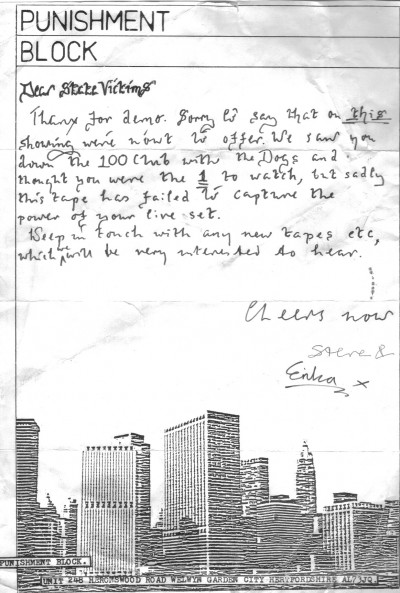 PUNISHMENT
BLOCK
Dear State Victims
Thanx for demo. Sorry to say that on this
showing we're nowt to offer. We saw you
down the 100 Club with the Dogs and
thought you were the 1 to watch, but sadly
this tape has failed to capture the
power of your live set.
Keep in touch with any new tapes etc,
which will be very interested to hear.
Cheers now
Steve &
Erika x
PUNISHMENT BLOCK.
UNIT 248 HERONSWOOD ROAD WELWYN GARDEN CITY HERTFORDSHIRE AL73JQ